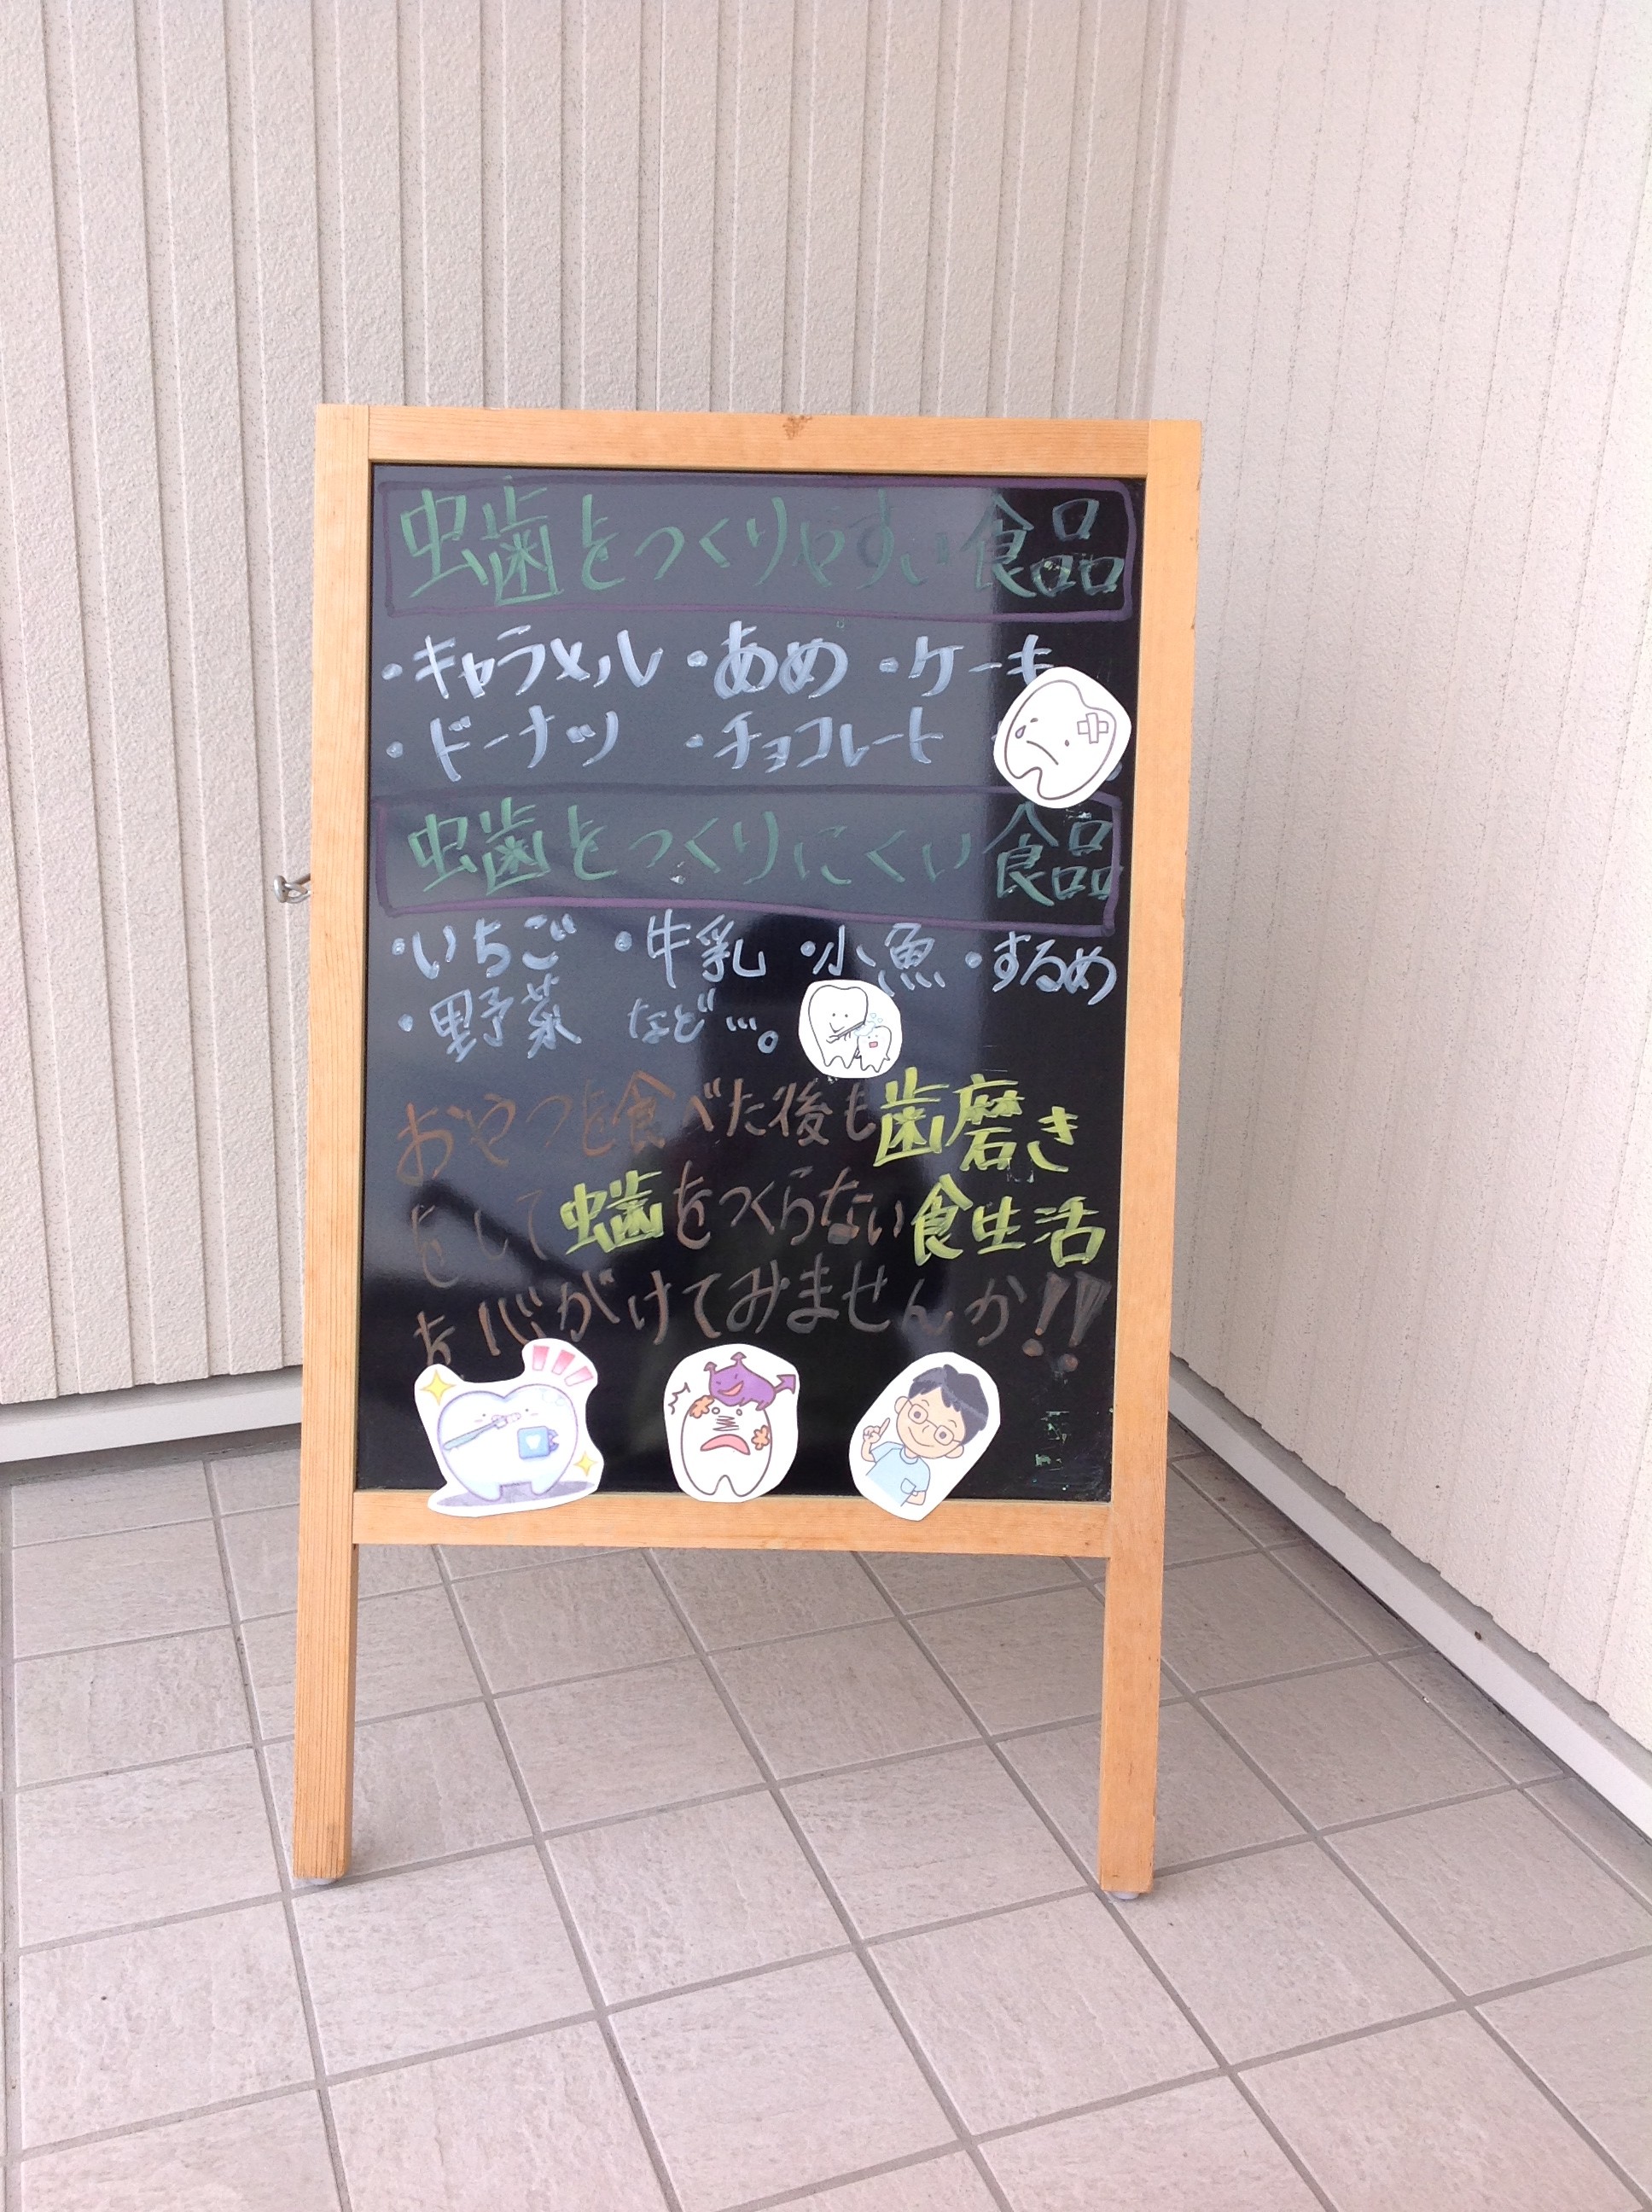 虫歯をつくりやすい食品
・キャラメル ・あめ ・ケーキ
・ドーナツ ・チョコレート
虫歯をつくりにくい食品
・いちご ・牛乳 ・小魚 ・するめ
・野菜 など…。
おやつを食べた後も歯磨き
をして虫歯をつくらない食生活
を心がけてみませんか!!